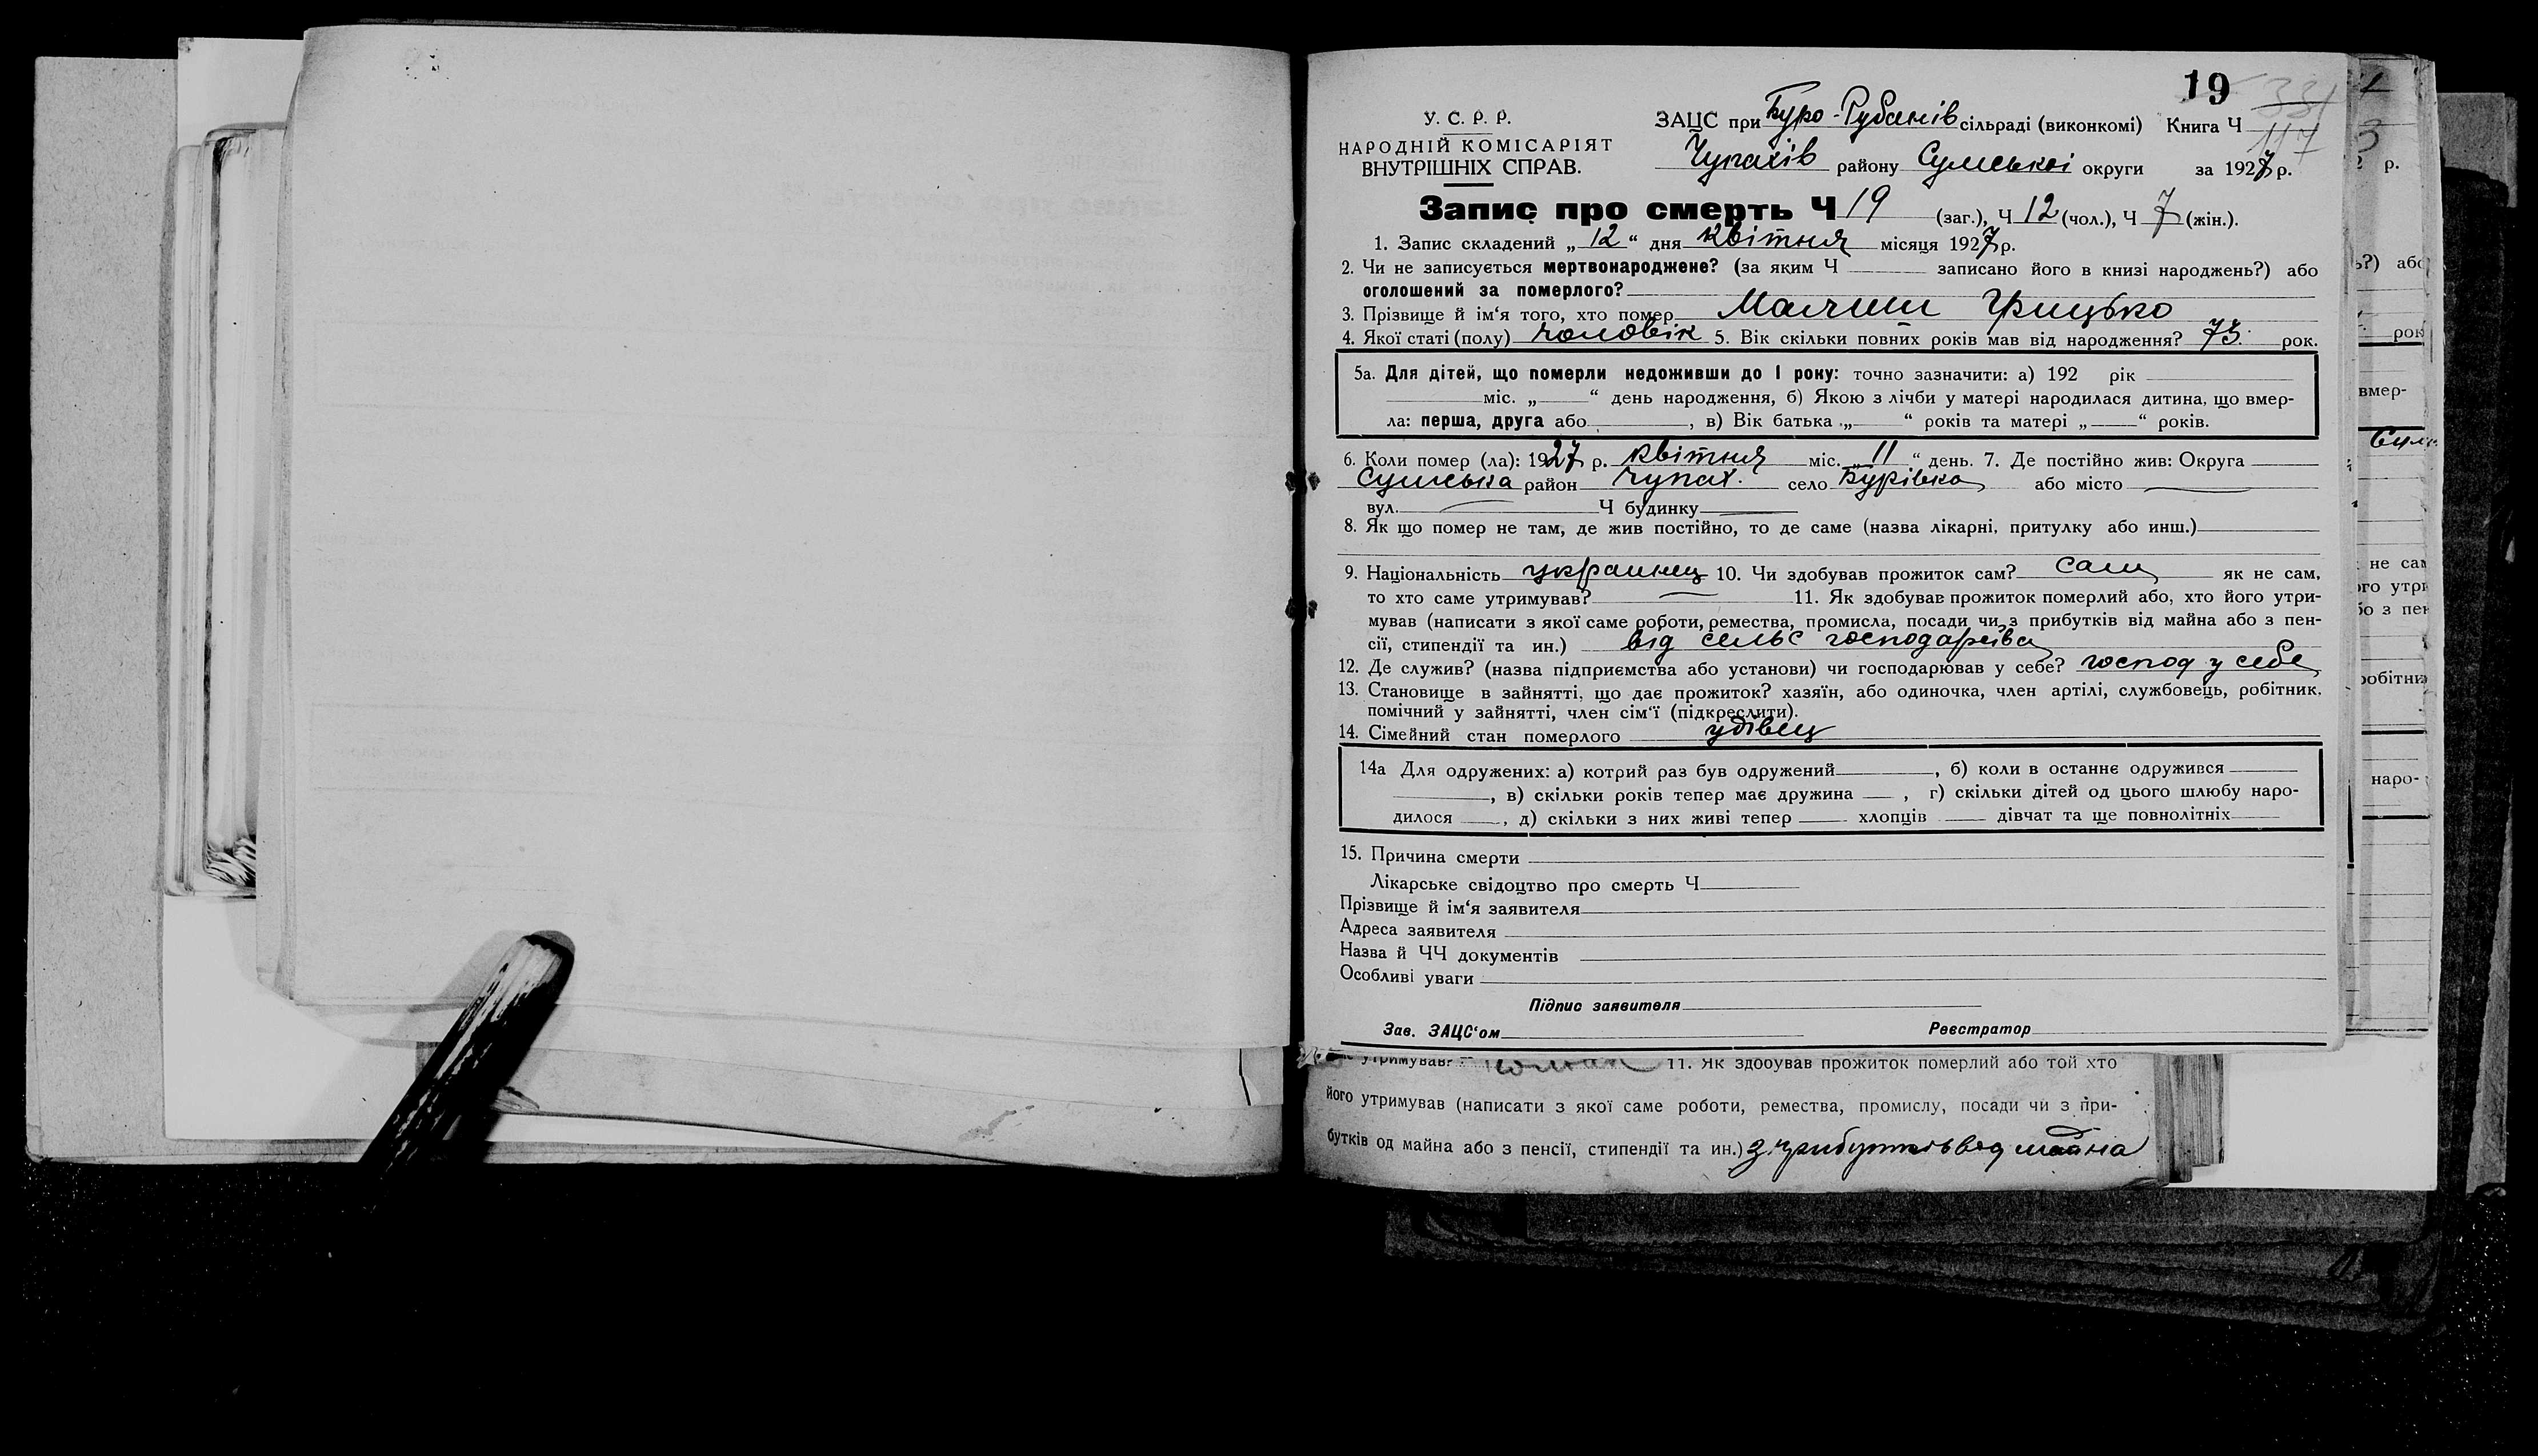 19
331
117
У. С. Р. Р.
НАРОДНІЙ КОМІСАРІЯТ
ВНУТРІШНІХ СПРАВ.
ЗАЦС при Буро-Рубанів сільраді (виконкомі) Книга Ч
Чупахів району Сумської округи за 1927 р.
Запис про смерть Ч 19 (заг.), Ч 12 (чол.), Ч 7 (жін.).
1. Запис складений „ 12 “ дня квітня місяця 1927 р.
2. Чи не записується мертвонароджене? (за яким Ч записано його в книзі народжень?) або
оголошений за померлого?
3. Прізвище й ім‘я того, хто помер Малиш Грицько
4. Якої статі (полу) чоловік 5. Вік скільки повних років мав від народження? 73 рок.
5а. Для дітей, що померли недоживши до 1 року: точно зазначити: а) 192 рік
міс. „ “ день народження, б) Якою з лічби у матері народилася дитина, що вмер-
ла: перша, друга або , в) Вік батька „ “ років та матері „ “ років.
6. Коли помер (ла): 1927 р. квітня міс. „ 11 “ день. 7. Де постійно жив: Округа
Сумська район Чупах. село Бурівка або місто
вул. Ч будинку
8. Як що помер не там, де жив постійно, то де саме (назва лікарні, притулку або инш.)
9. Національність украинец 10. Чи здобував прожиток сам? сам як не сам,
то хто саме утримував? 11. Як здобував прожиток померлий або, хто його утри-
мував (написати з якої саме роботи, ремества, промисла, посади чи з прибутків від майна або з пен-
сії, стипендії та ин.) від сельс господарсва
12. Де служив? (назва підприємства або установи) чи господарював у себе? господ у себе
13. Становище в зайнятті, що дає прожиток? хазяїн, або одиночка, член артілі, службовець, робітник,
помічний у зайнятті, член сім‘ї (підкреслити).
14. Сімейний стан померлого удівец
14а Для одружених: а) котрий раз був одружений , б) коли в останнє одружився
, в) скільки років тепер має дружина , г) скільки дітей од цього шлюбу наро-
дилося , д) скільки з них живі тепер хлопців дівчат та ще повнолітніх
15. Причина смерти
Лікарське свідоцтво про смерть Ч
Прізвище й ім‘я заявителя
Адреса заявителя
Назва й ЧЧ документів
Особливі уваги
Підпис заявителя
Зав. ЗАЦС‘ом Реєстратор
утримував? 11. Як здобував прожиток померлий або той хто
його утримував (написати з якої саме роботи, ремества, промислу, посади чи з при-
бутків од майна або з пенсії, стипендії та ин.) з прибутків вод майна
р.
ь?) або
рок
вмер-
не сам
ого утри
бо з пен
робітни
наро-